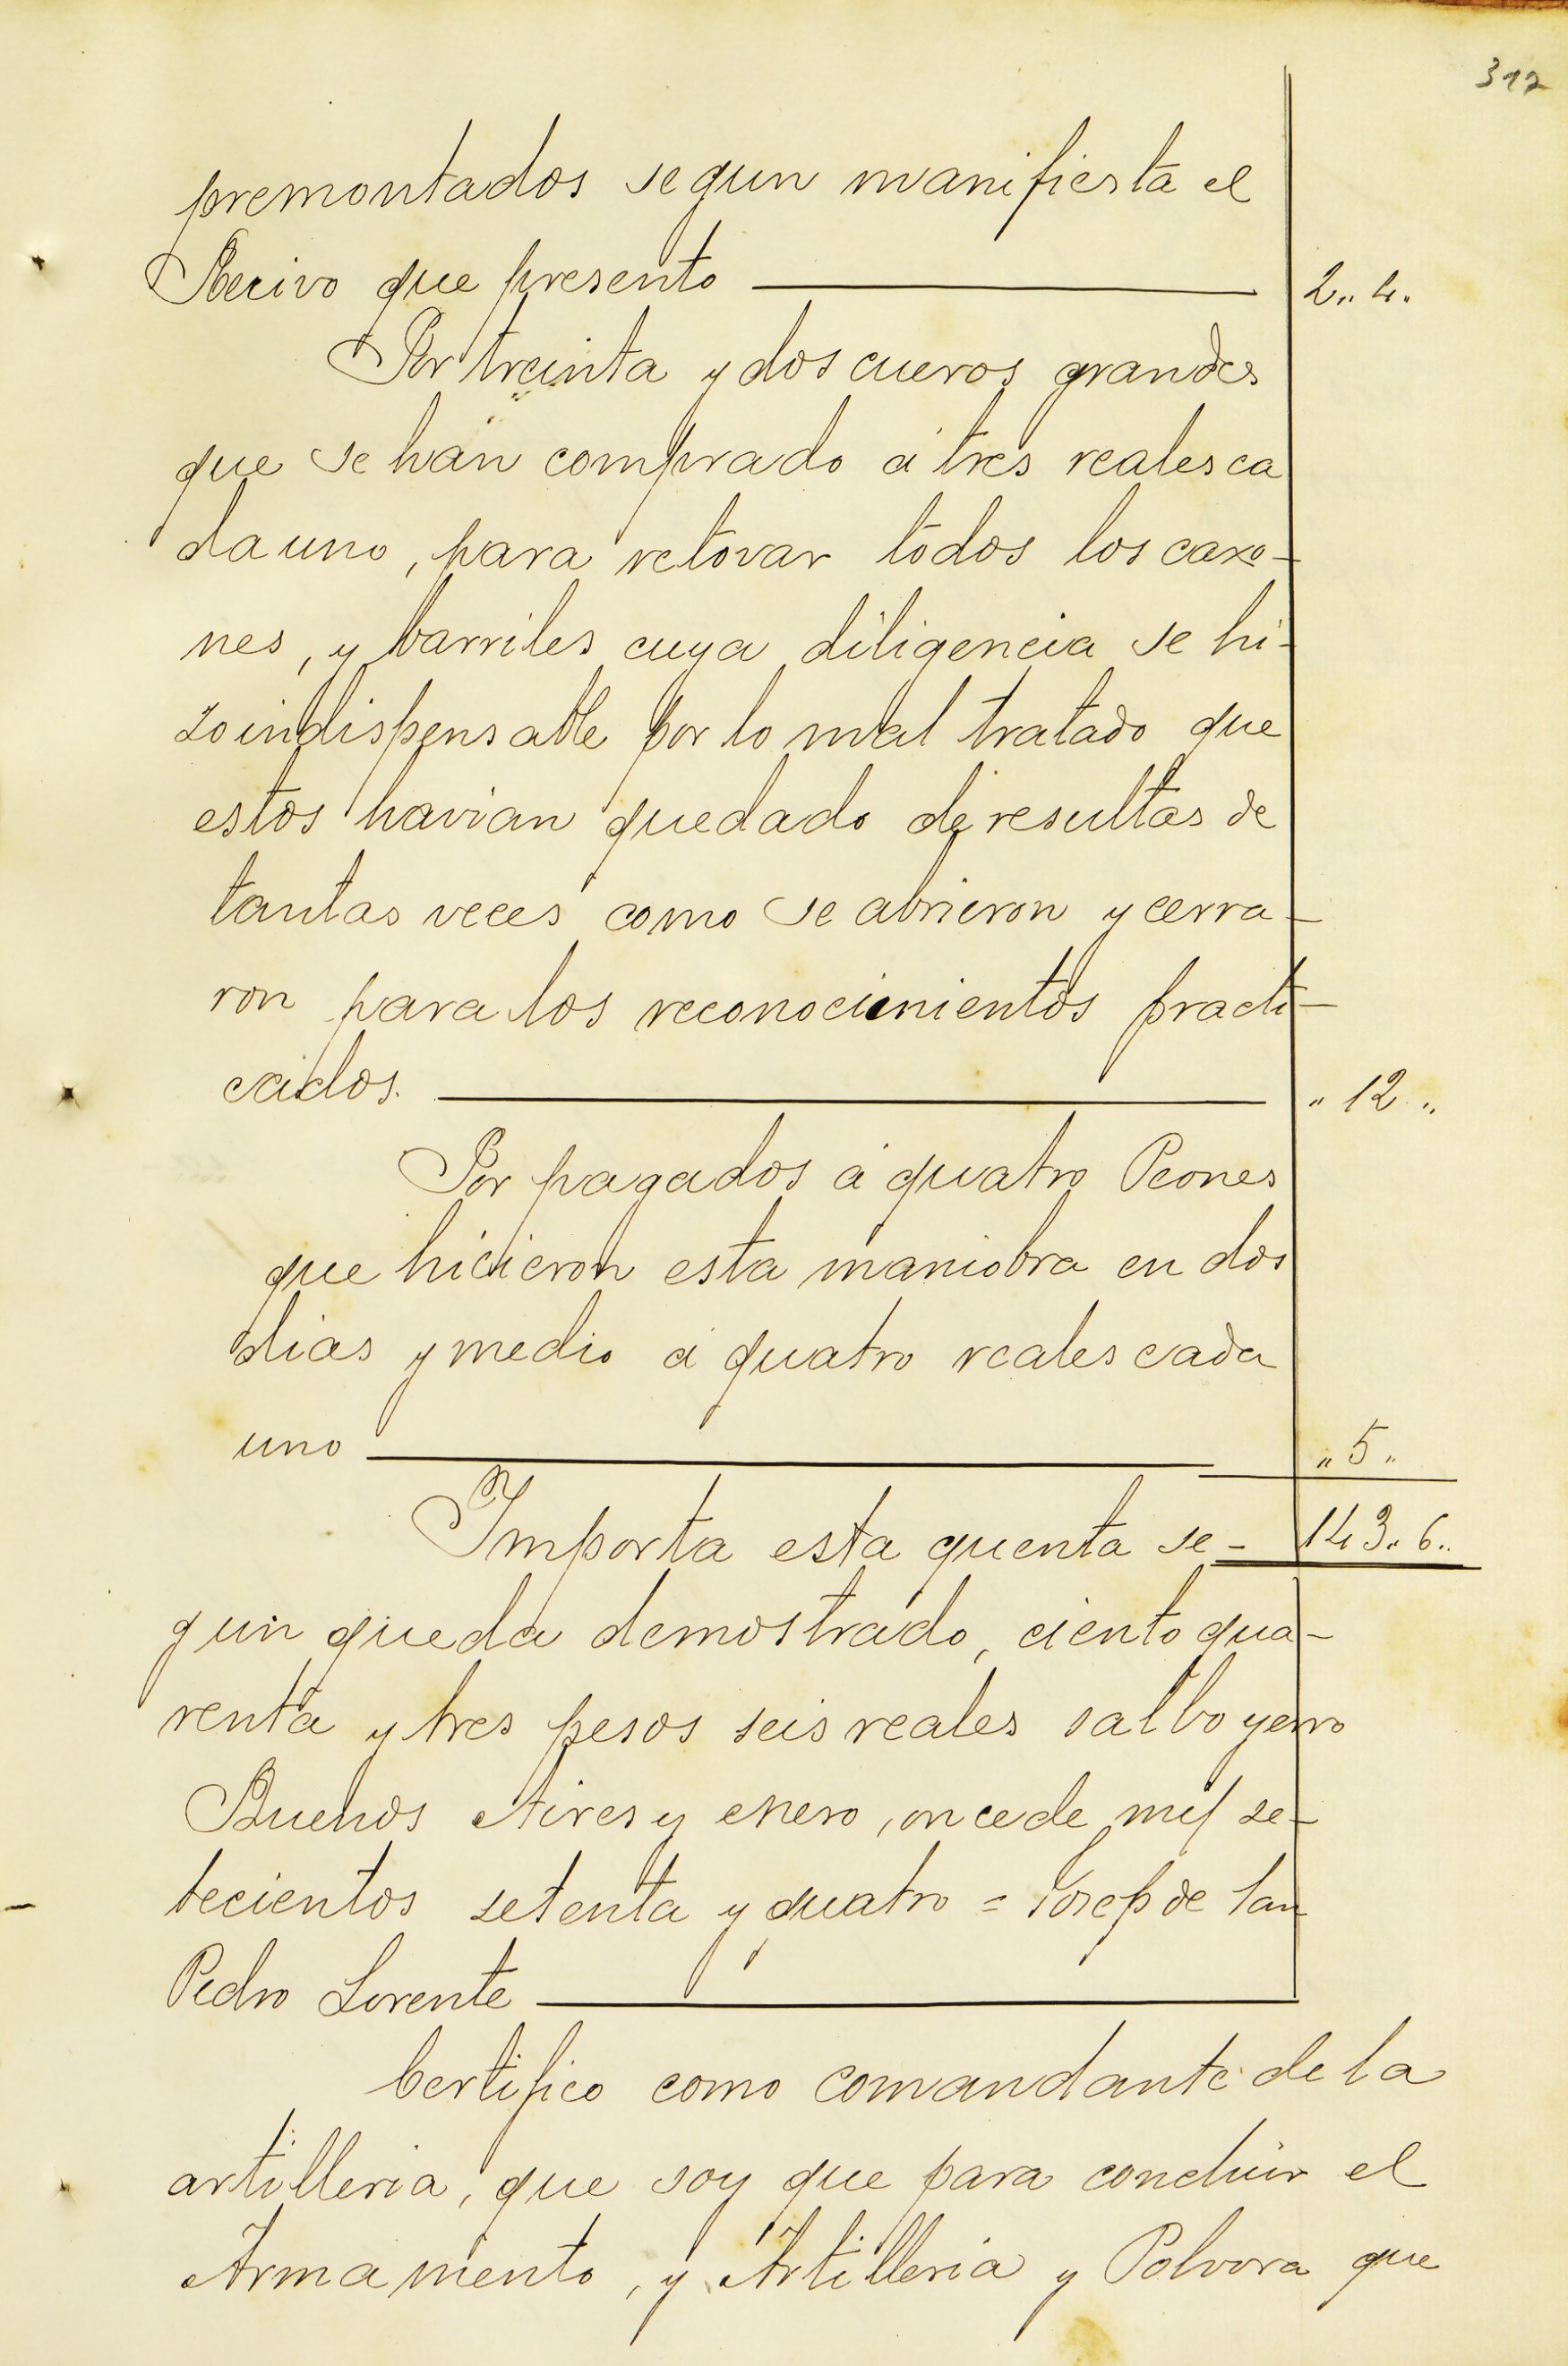 312
premontados segun manifiesta el
Recivo que presento ——— 2,, 4.
Por treinta y dos cueros grandes
que se han comprado á tres reales ca
da uno, para retovar todos los caxo-
nes, y barriles cuya diligencia se hi-
zo indispensable por lo mal tratado que
estos havian quedado de resultas de
tantas veces como se abrieron y cerra-
ron para los reconocimientos practi-
cados. ——— ,, 12 ,,
Por pagados á quatro Peones
que hicieron esta maniobra en dos
dias y medio á quatro reales cada
uno ——— ,, 5 ,,
Importa esta quenta se- 143,, 6,,
gun queda demostrado, ciento qua-
renta y tres pesos seis reales salbo yerro
Buenos Aires y enero, once de mil se-
tecientos setenta y quatro = Josep de San
Pedro Lorente ———
Certifico como comandante de la
artilleria, que soy que para concluir el
Armamento, y Artilleria y Polvora que